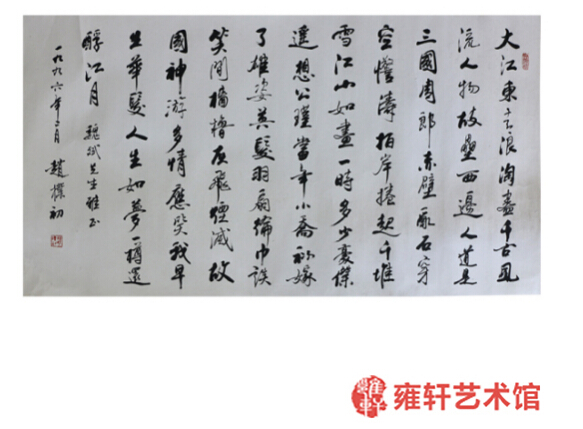 大江東去浪淘盡千古風
流人物故壘西邊人道是
三國周郎赤壁亂石穿
空驚濤拍岸捲起千堆
雪江山如畫一時多少豪傑
遙想公瑾當年小喬初嫁
了雄姿英發羽扇綸巾談
笑間檣櫓灰飛煙滅故
國神游多情應笑我早
生華髮人生如夢一樽還
酹江月 魏斌先生雅正
一九九六年二月 趙樸初
雍轩艺术馆